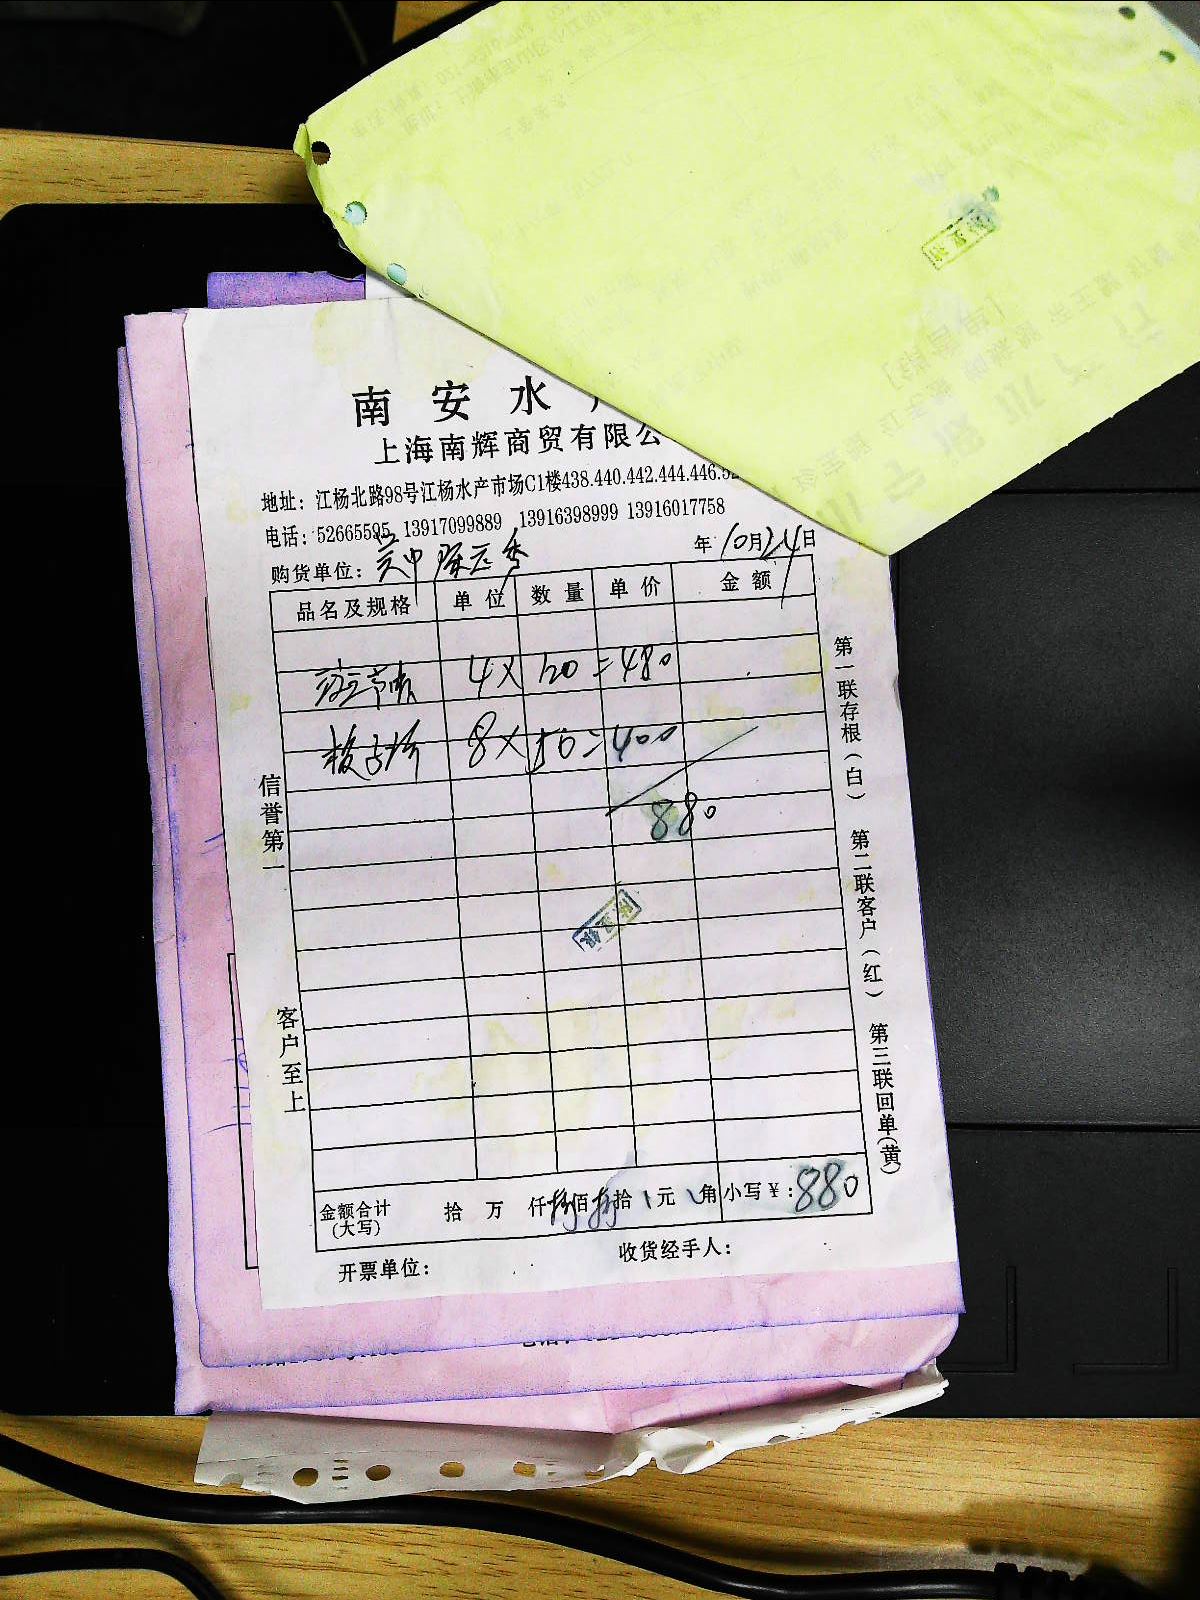 南安水
上海南辉商贸有限公
地址：江杨北路98号江杨水产市场C1楼438.440.442.444.446.52
电话：52665595 13917099889 13916398999 13916017758
年10月24日
购货单位：吴中
品名及规格 单位 数量 单价 金额
4×120=480
8×50=400
880
信誉第一
客户至上
第一联存根（白） 第二联客户（红） 第三联回单（黄）
金额合计（大写） 拾 万 仟捌佰捌拾 元 角 小写￥：880
开票单位： 收货经手人：